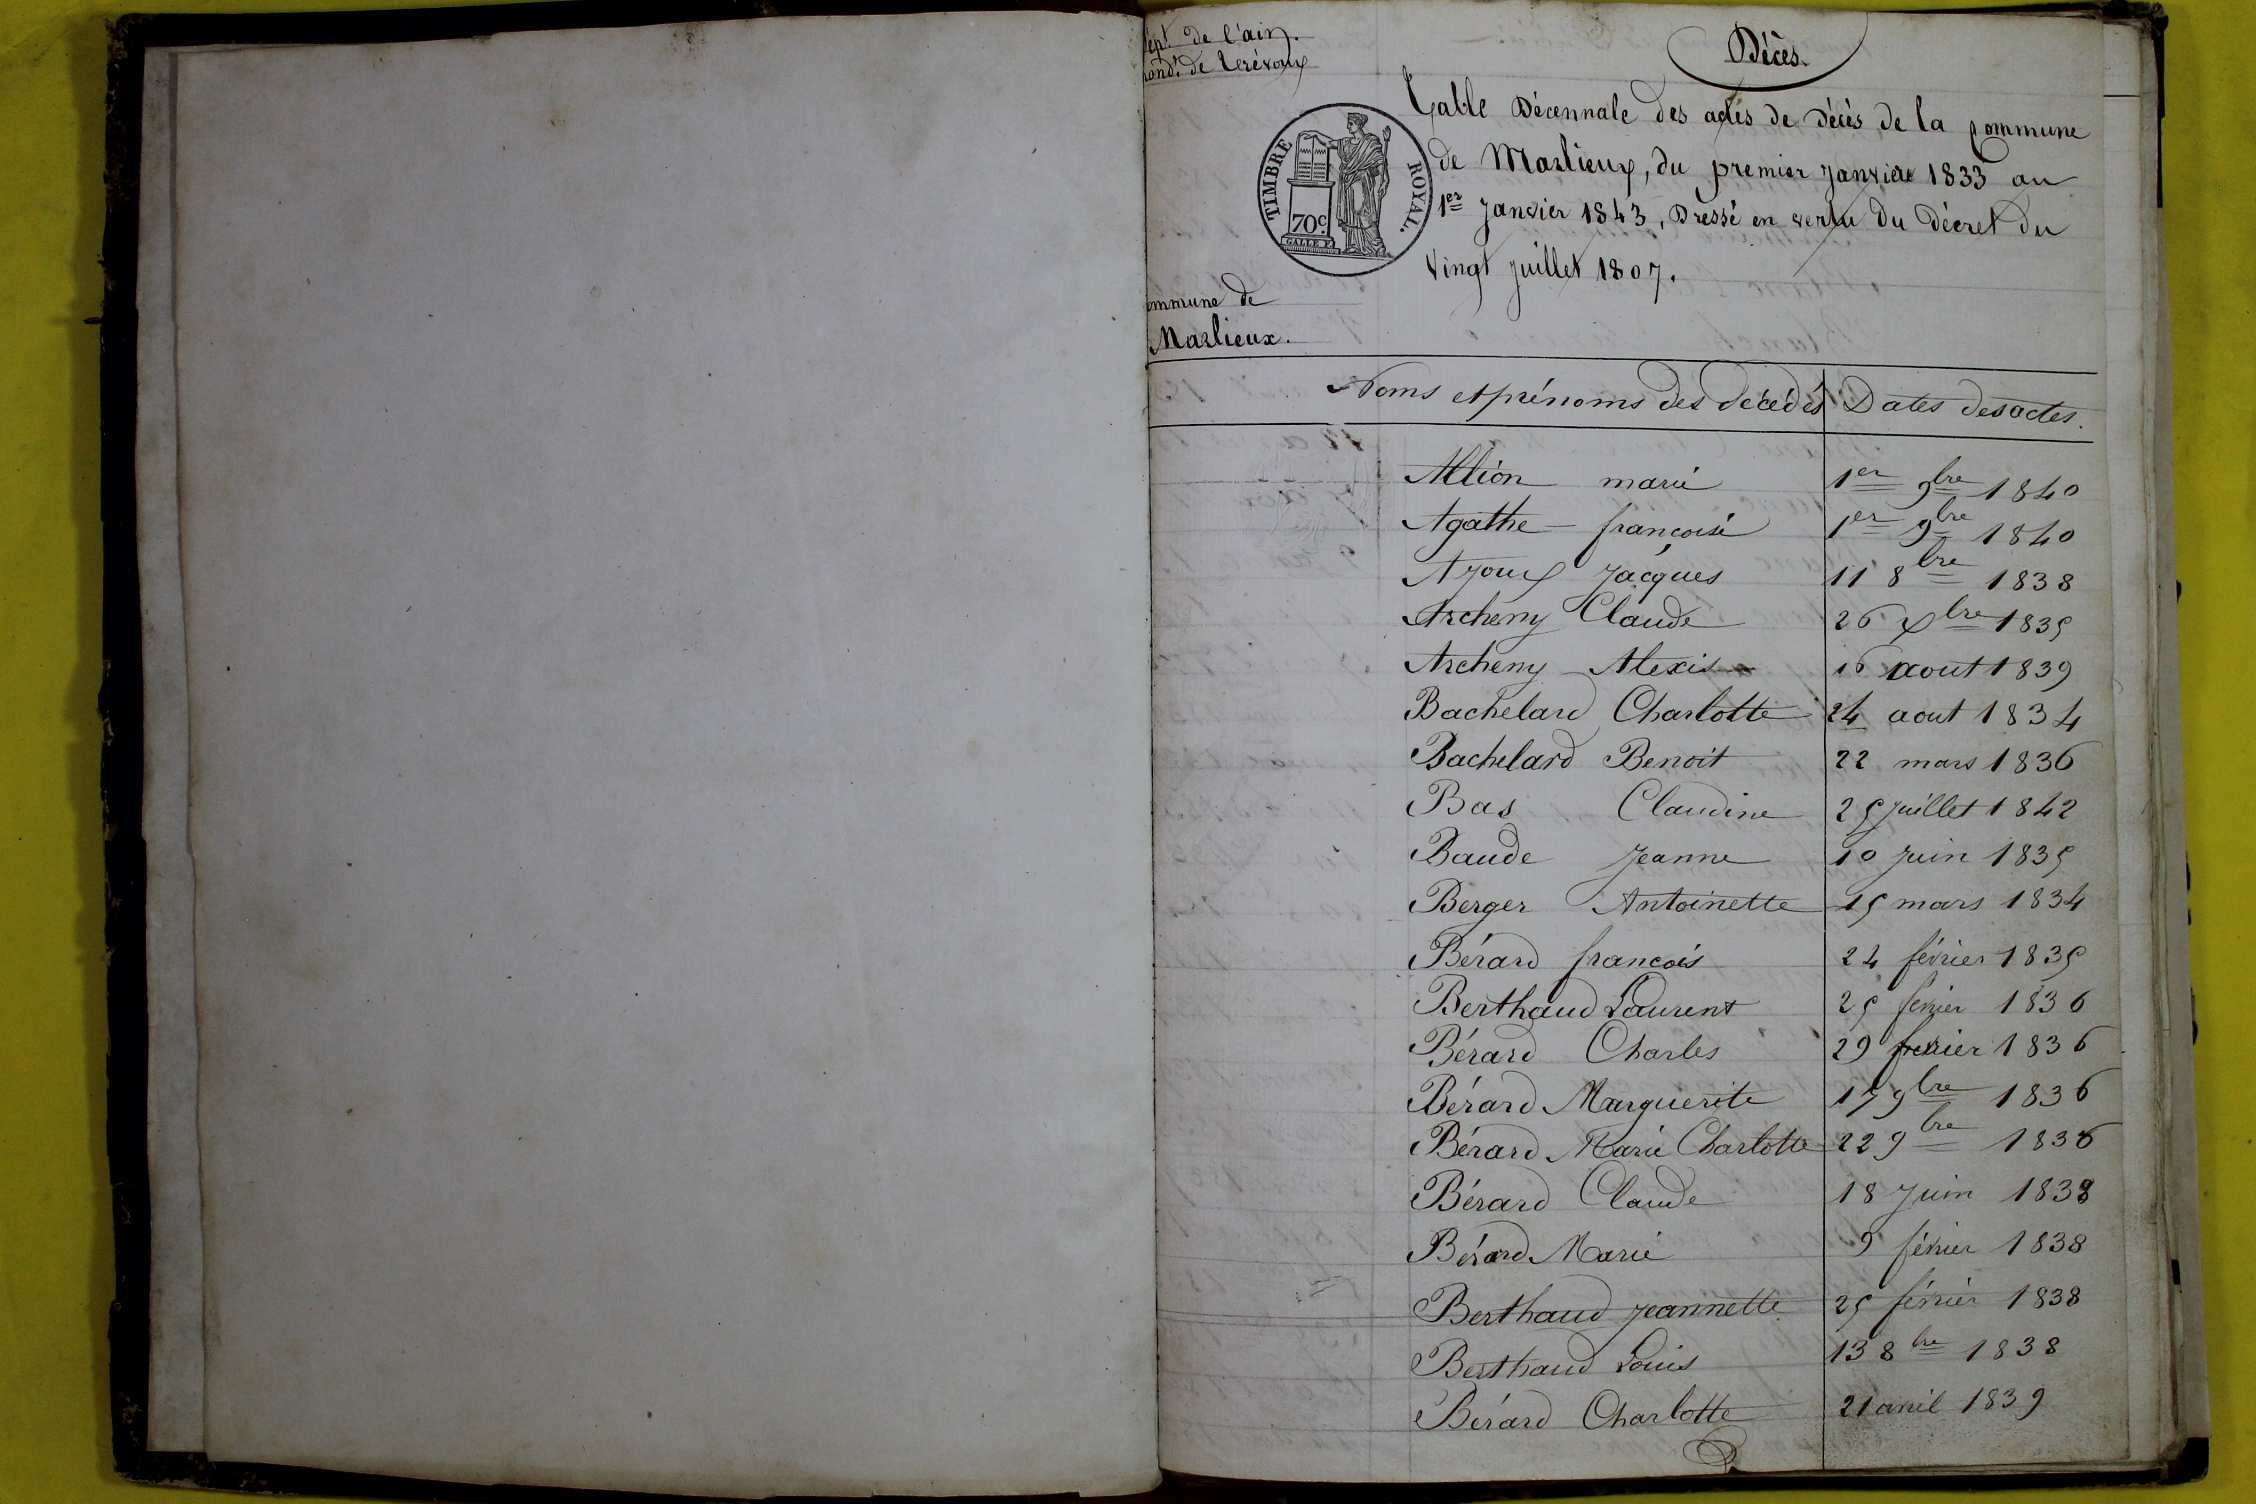 épt. de l'ain.
ondt. de trévoux
Décès.
Table Décennale des actes de décès de la commune
de Marlieux, du premier Janvier 1833 au
1er Janvier 1843, Dressé en vertu du Décret du
vingt juillet 1807.
TIMBRE ROYAL.
70c.
ommune de
Marlieux.
Noms et prénoms des décédés Dates des actes.
Allion marie 1er 9bre 1840
Agathe françoise 1er 9bre 1840
Ajoux Jacques 11 8bre 1838
Archeny Claude 26 xbre 1835
Archeny Alexis 16 aout 1839
Bachelard Charlotte 24 aout 1834
Bachelard Benoit 22 mars 1836
Bas Claudine 25 juillet 1842
Baude Jeanne 10 juin 1835
Berger Antoinette 15 mars 1834
Bérard françois 24 février 1835
Berthaud Laurent 25 février 1836
Bérard Charles 29 février 1836
Bérard Marguerite 17 9bre 1836
Bérard Marie Charlotte 22 9bre 1836
Bérard Claude 18 Juin 1838
Bérard Marie 9 février 1838
Berthaud Jeannette 25 février 1838
Berthaud Louis 13 8bre 1838
Bérard Charlotte 21 avril 1839